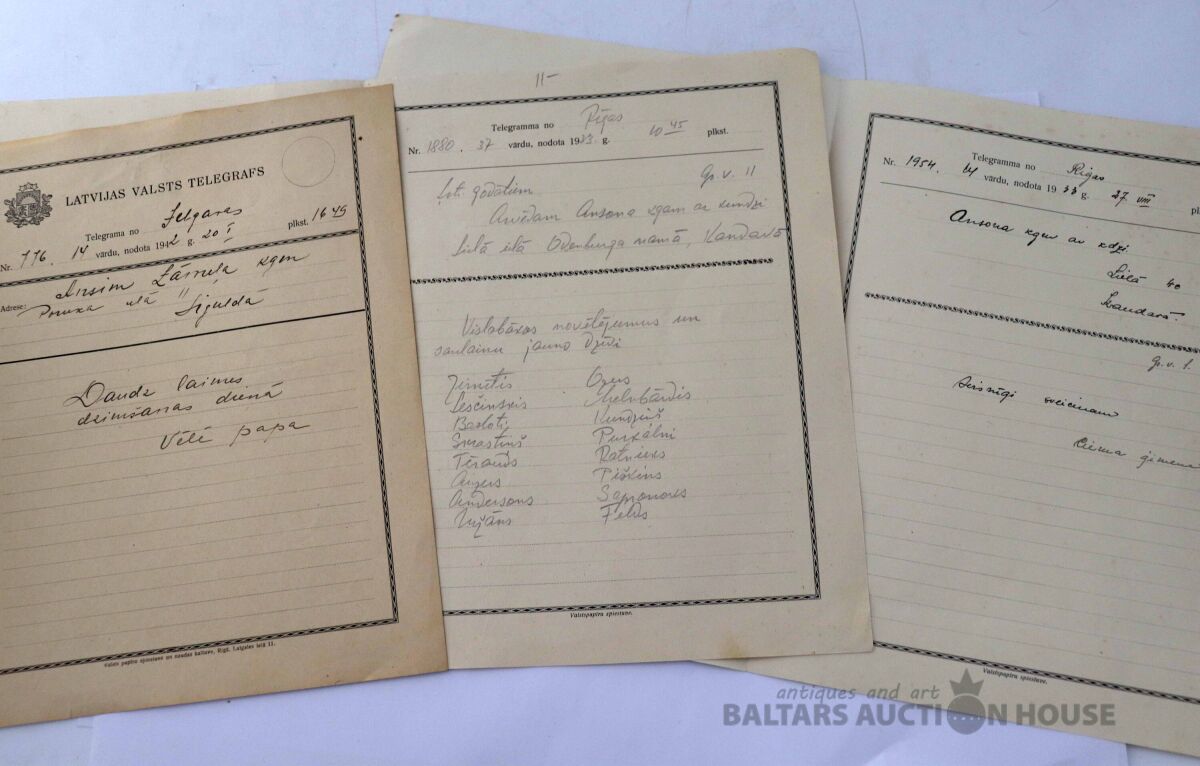 LATVIJAS VALSTS TELEGRAFS
Telegrama no Jelgavas
Nr. 776. 14 vārdu, nodota 1942 g. 20 I plkst. 16 45
Adrese: kgm
Poruka ielā 11
Siguldā
Daudz laimes
dzimšanas dienā
Vēlē papa
Valsts papīru spiestuve un naudas kaltuve, Rīgā, Latgales ielā 11.
11-
Telegramma no Rīgas
Nr. 1880. 37 vārdu, nodota 1933. g. 10 45 plkst.
Ļoti godātiem Gr. v. 11
Arvēdam Ansona kgam ar kundzi
Lielā ielā Odenburga namā, Kandavā
Vislabākos novēlējumus un
saulainu jauno dzīvi
Zirnītis Ozers
Leščinskis Melnbārdis
Kundziņš
Skrastiņš Purkalni
Tērauds Ratnieks
Augers Piškins
Andersons
Feldis
Valstspapīru spiestuve.
Telegramma no Rīgas
Nr. 1954. 14 vārdu, nodota 1933 g. 27 VIII
Ansona kgm ar kdzi
Lielā 40
Kandavā.
Gr. v. 1.
Sirsnīgi sveicinam
Ciema ģimene
Valstspapīru spiestuve.
antiques and art
BALTARS AUCTION HOUSE